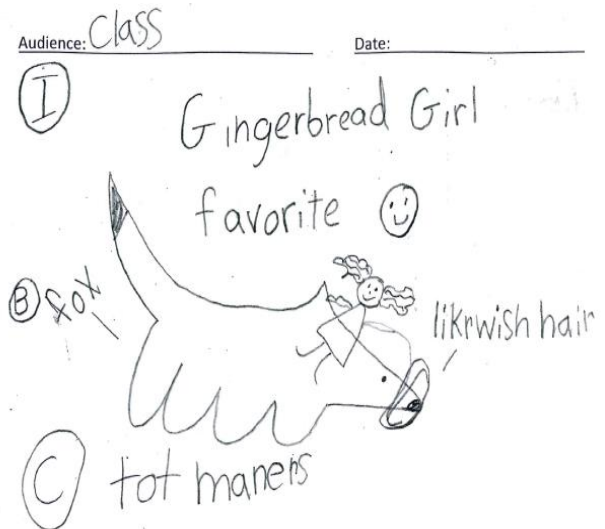 Audience: Class
Date:
I
Gingerbread Girl
favorite
B fox
likrwish hair
C tot maners